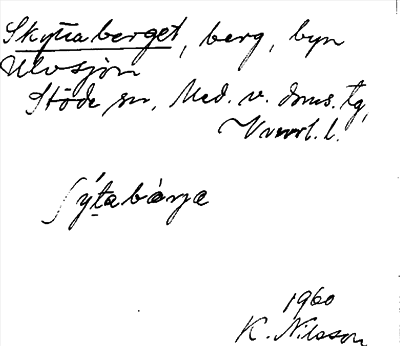 Skyttaberget, berg, byn
Ulvsjön
Stöde sn, Med. v. doms. tg,
Vnorl. l.
ʃýtabárja
1960
K. Nilsson